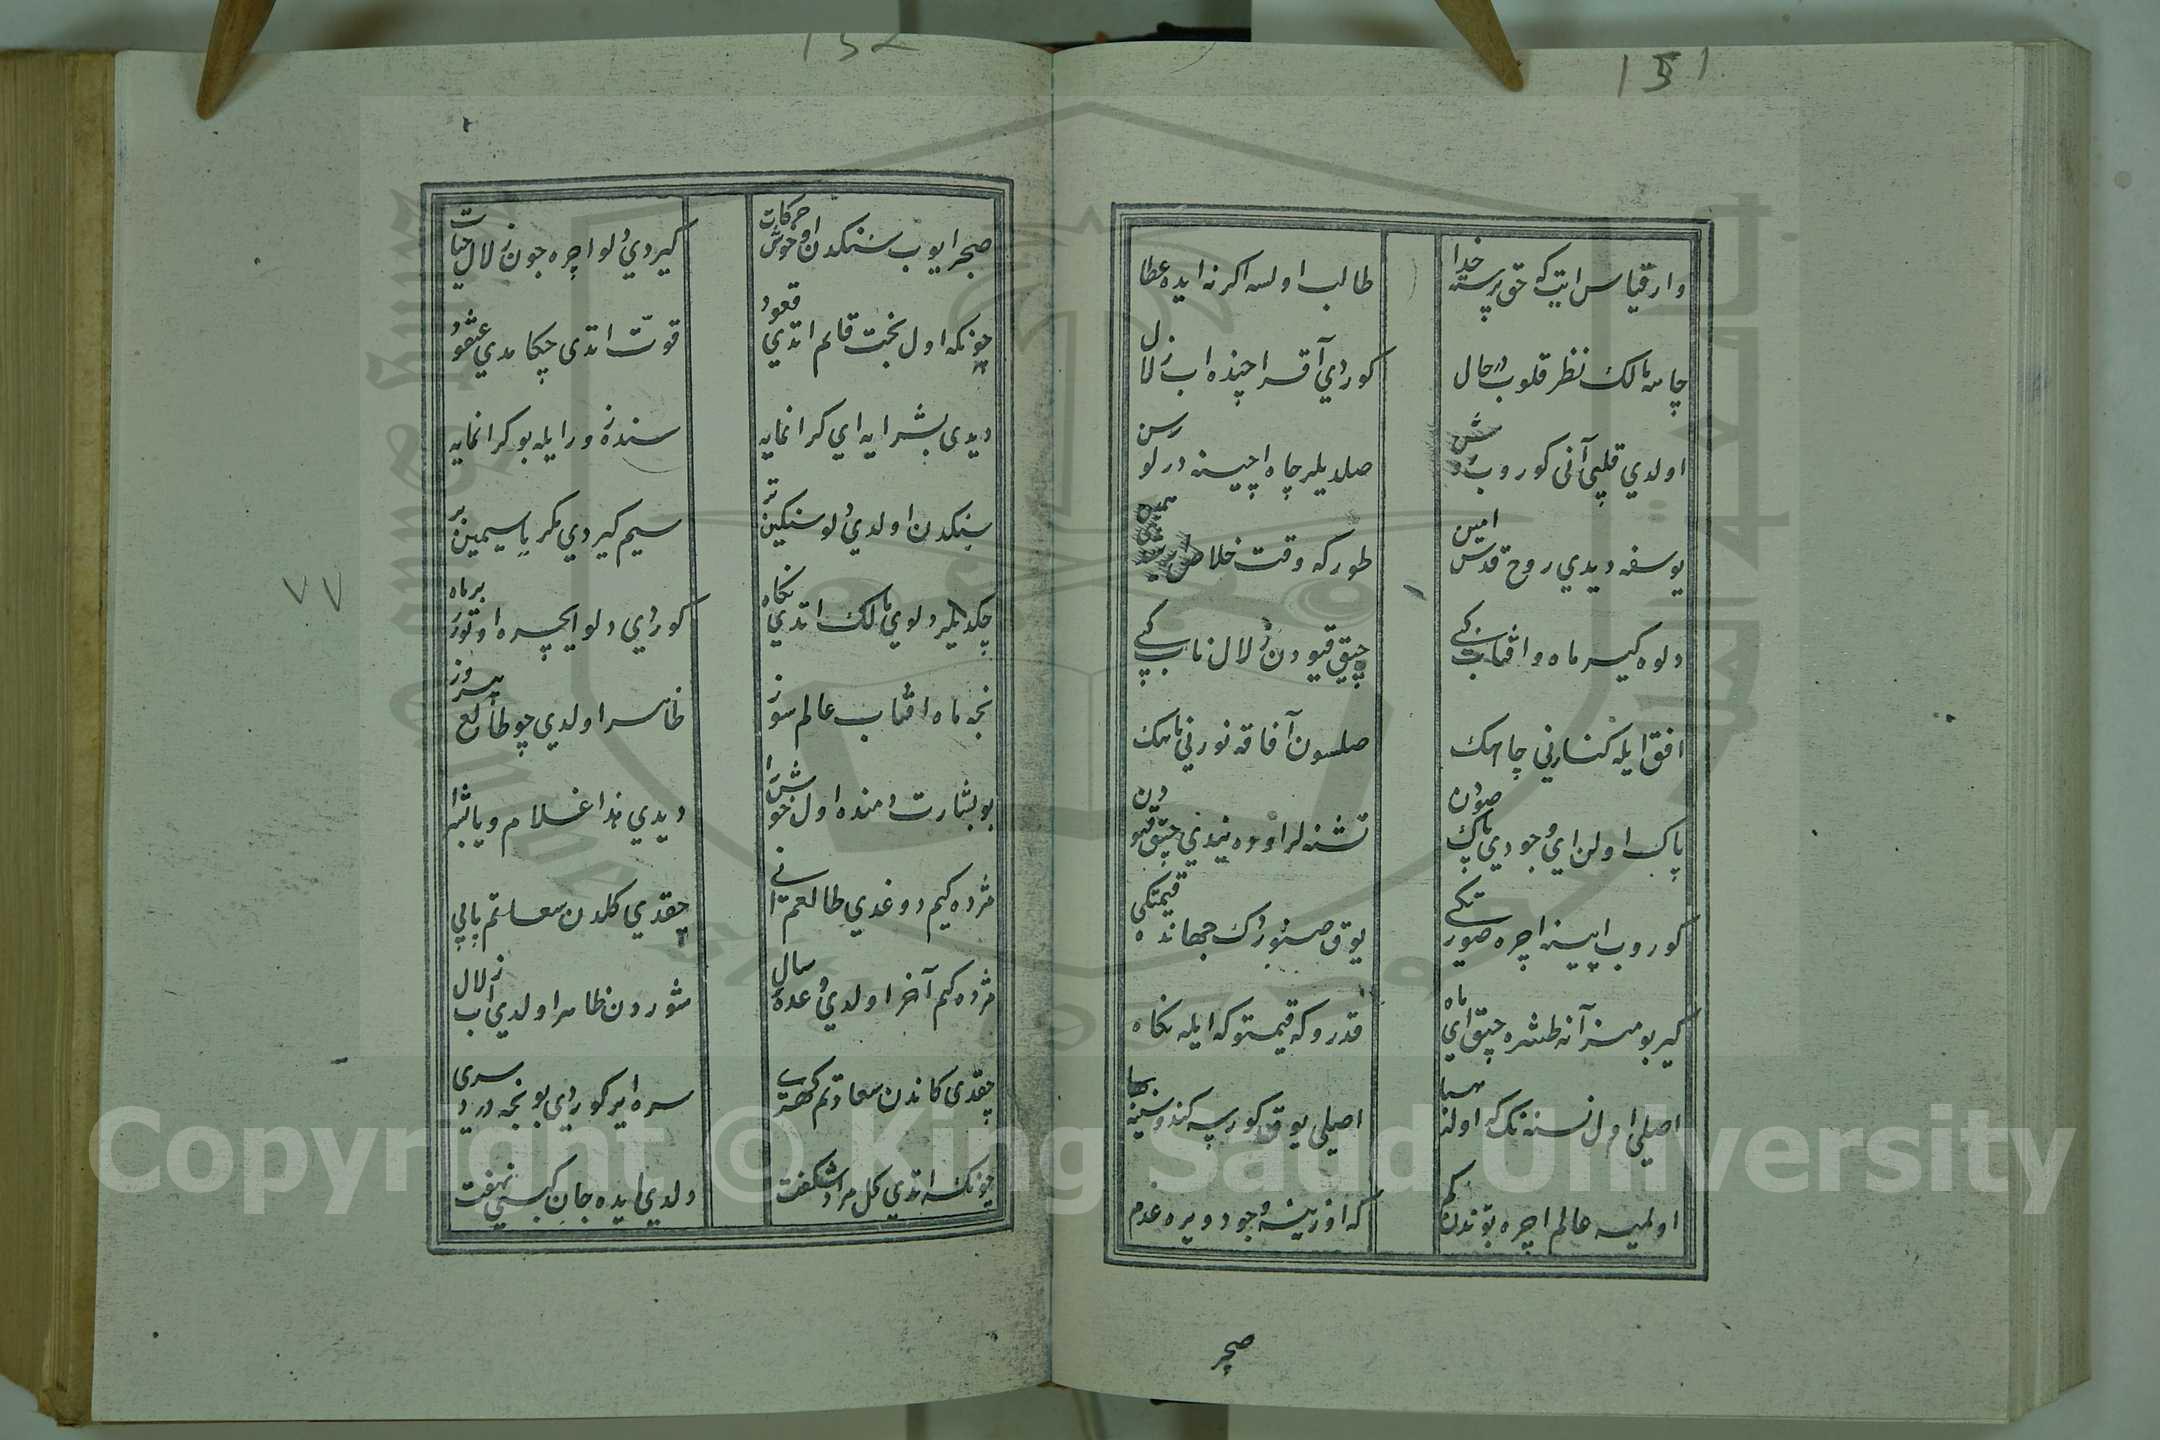 151
وار قیاس ایت که حق پرسته خدا
طالب اولسه اکر نه ایده عطا
چاهه مالک نظر قلوب در حال
کوردی آقر ایچنده اب زلال
اولدی قلبی آنی کوروب روشن
صلدیلر چاه ایچینه دلو رسن
یوسفه دیدی روح قدس امین
طور که وقت خلاص
دلوه کیر ماه وافتاب کبی
چیق قیودن زلال ناب کبی
افق ایله کنارنی چاهک
صلسون آفاقه نورنی ماهک
پاک اولن ای وجودی پاک صودن
تشنه لر اودینه چیق قیودن
کوروب ایینه ایچره صورتکی
یوق صنوردک جهانده قیمتکی
کیر بو میزانه طشره چیق ای ماه
قدروکه قیمتوکه ایله نکاه
اصلی اول نسنه نک که اولنه بها
اصلی یوق کورسه کندوسینه بها
اولمیه عالم ایچره بوندن کم
که افرینشه وجود ویره عدم
صبر
152
صبر ایوب سنکدن اوخوش حرکات
کیردی دلو ایچره چون زلال حیات
چونکه اول بخت قائم اتدی قعود
قوت اتدی چکامدی عنقود
دیدی بشرایه ای کرانمایه
سنده زور ایله بو کرانمایه
سنکدن اولدی دلو سنکین تر
سیم کیردی مکر یا سیمین بر
چکدیلر دلوی مالک اتدی نکاه
کوردی دلو ایچره اوتورر بر ماه
نجه ماه افتاب عالم سوز
ظاهر اولدی چو طالع پیروز
بو بشارت دمنده اول خوش را
دیدی هذا غلام ویا بشرا
مژده کیم دوغدی طالعم آنی
چقدی کلدن سعادتم پایی
مژده کیم آخر اولدی وعده سال
شوردن ظاهر اولدی اب زلال
چقدی کاندن سعادتم کهری
سره ایر کوردی بو نجه در دسری
چونکه اتدی کل مراد شکفت
دلدی ایده جان کبی نهفت
٧٧
Copyright © King Saud University